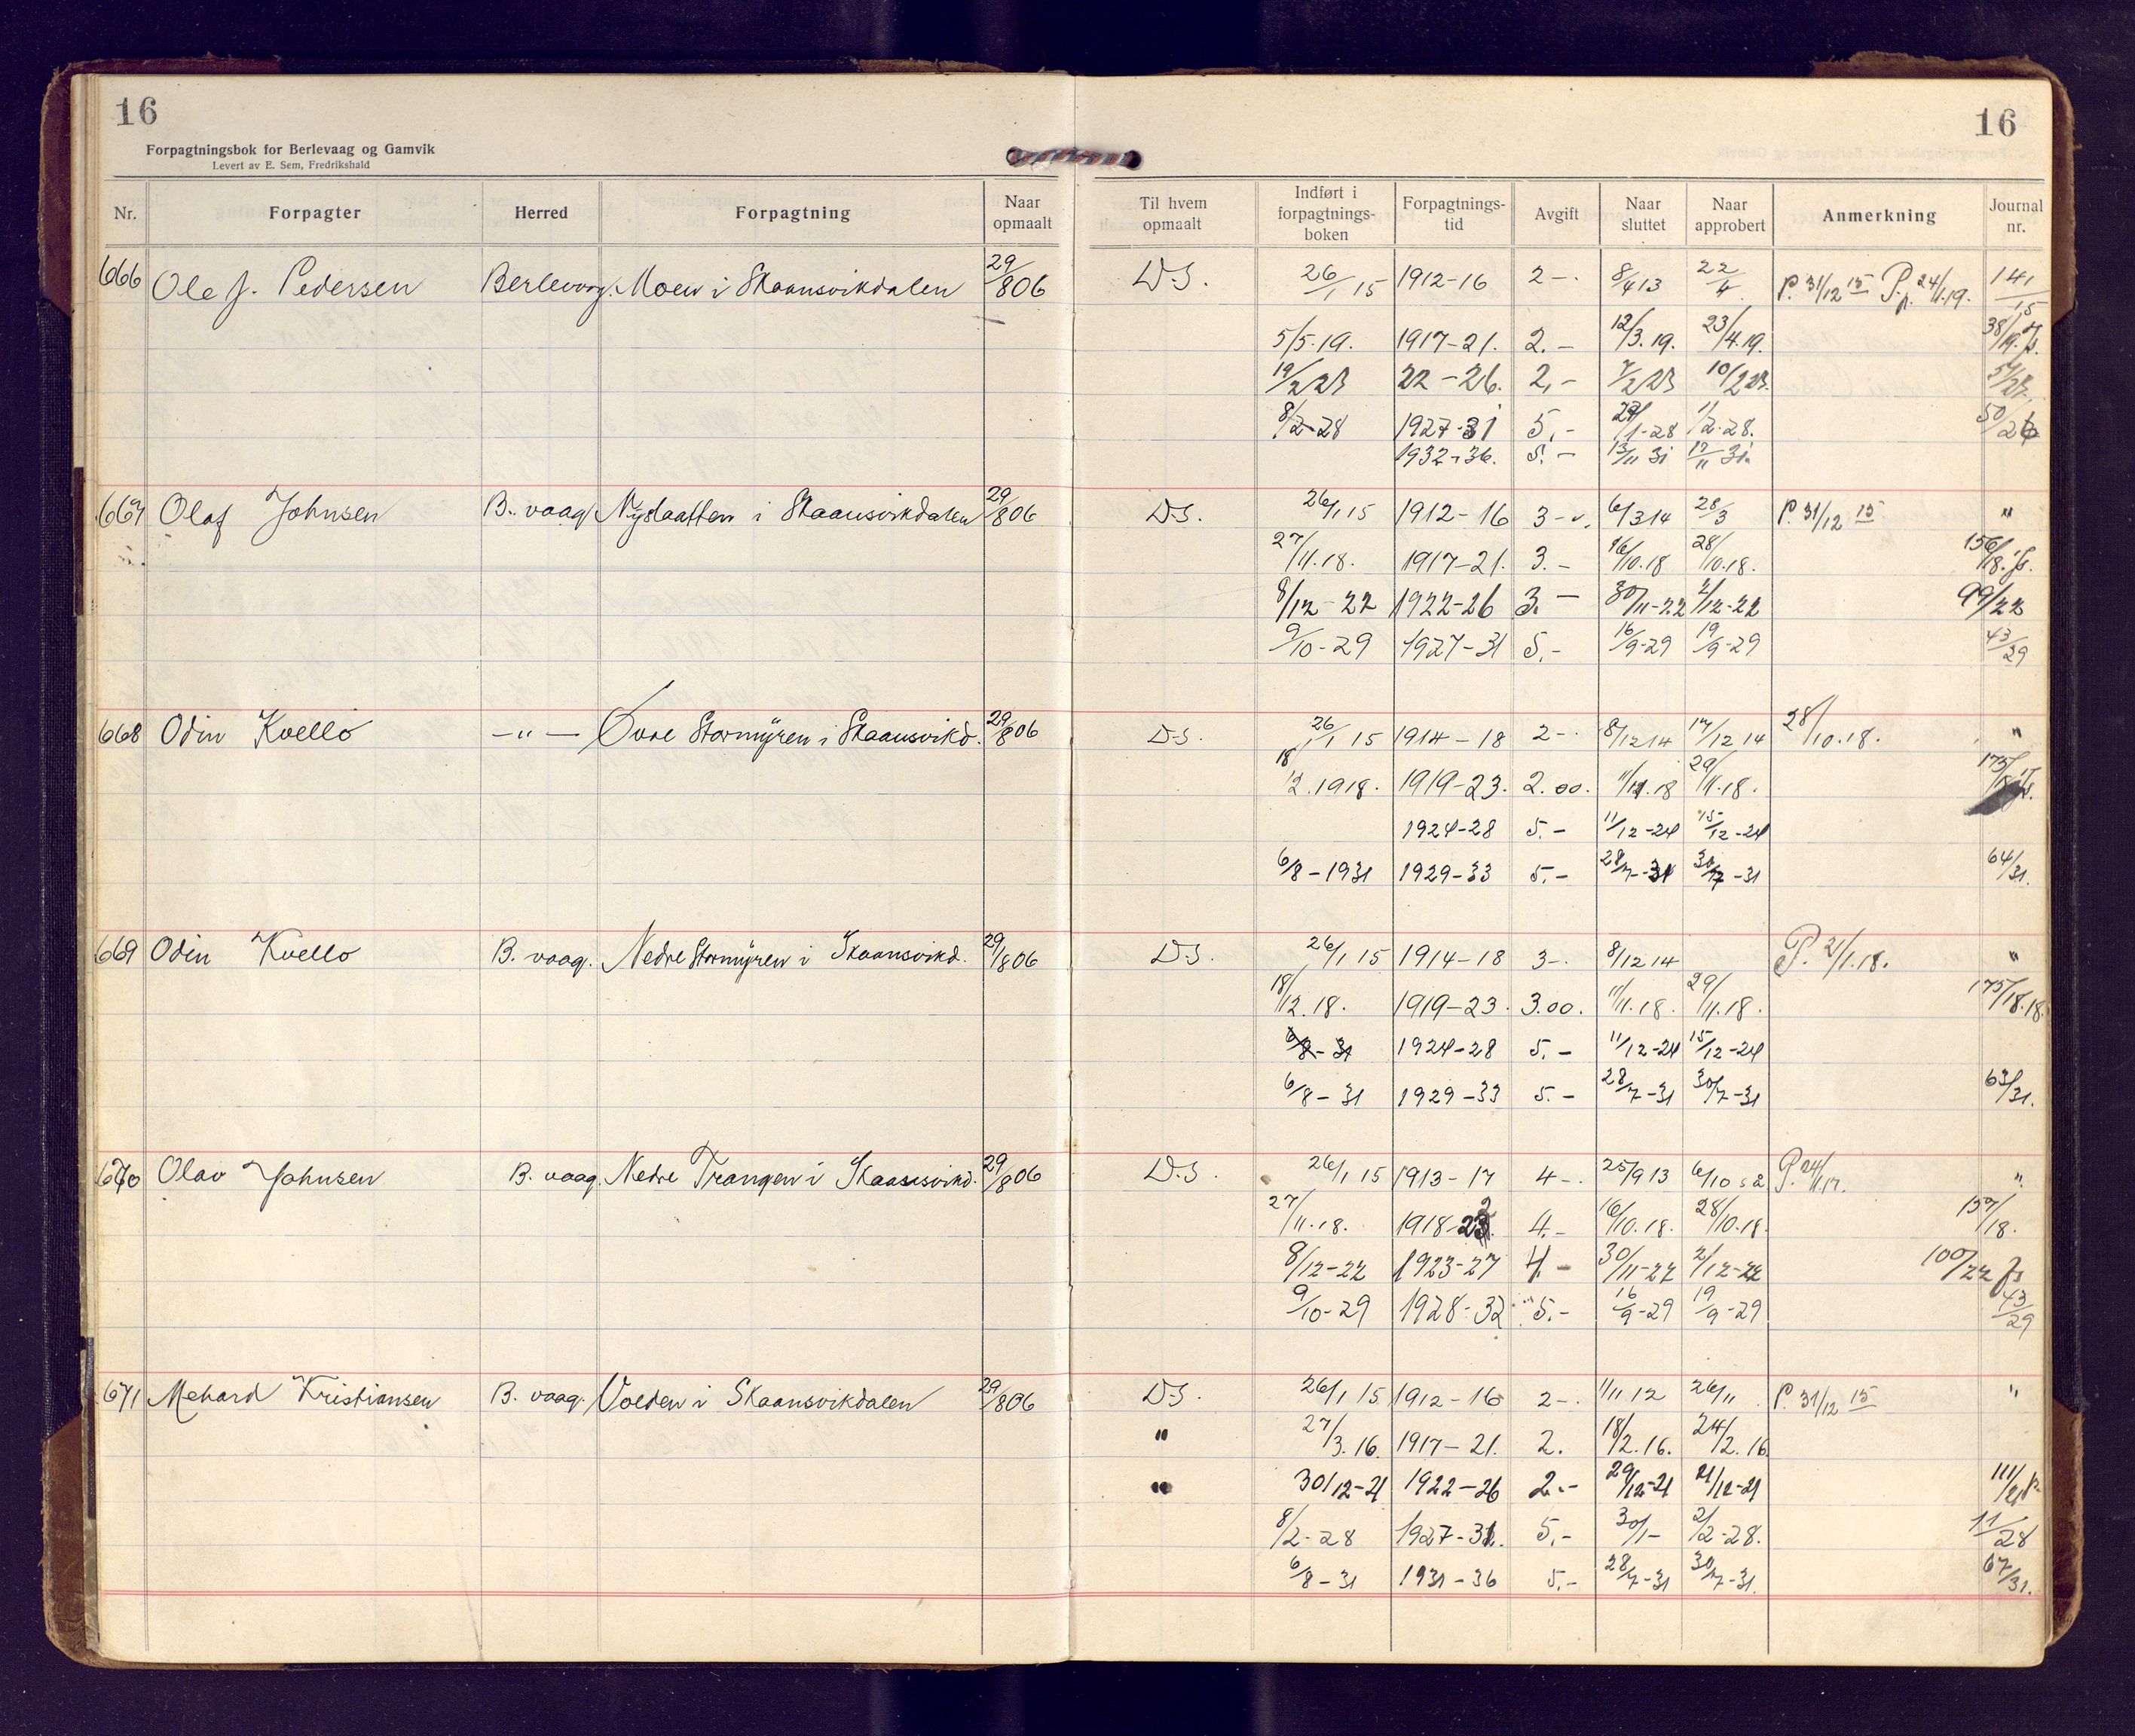 16
16
Forpagtningsbok for Berlevaag og Gamvik
Levert av E. Sem, Fredrikshald
Nr. Forpagter Herred Forpagtning Naar opmaalt Til hvem opmaalt Indført i forpagtnings-boken Forpagtnings-tid Avgift Naar sluttet Naar approbert Anmerkning Journal nr.
666 Ole J. Pedersen Berlevaag. Moen i Skaansvikdalen 29/8 06 D.S. 26/1 15 1912-16 2-. 8/4 13 22/4 P. 31/12 15 P. 24/1.19. 141/15
5/5.19. 1917-21. 2.- 12/3.19. 23/4.19. 38/19.
19/2 23 22-26. 2,- 7/2 23 10/2 23. 54/23.
8/2-28 1927-31 5,- 1/2-28. 50/26
1932-36. 5.- 13/11 31 17/11 31.
667 Olaf Johnsen B. vaag Nyslaatten i Skaansvikdalen 29/8 06 D.S. 26/1 15 1912-16 3-. 6/3 14 28/3 P. 31/12 15 "
27/11.18. 1917-21. 3.- 16/10.18 28/10.18. 156/18.
8/12-22 1922-26 3.- 30/11-22 2/12-22 99/22
9/10-29 1927-31 5.- 16/9-29 19/9-29 43/29
668 Odin Kvello -"- Øvre Stormyren i Skaansvikd. 29/8 06 D.S. 26/1 15 1914-18 2-. 8/12 14 17/12 14 28/10.18. "
18/12.1918. 1919-23. 2.00. 11/11.18 29/11.18. 175/18
1924-28 5.- 11/12-24 15/12-24
6/8-1931 1929-33 5.- 28/7-31 30/7-31 64/31.
669 Odin Kvello B. vaag. Nedre Stormyren i Skaansvikd. 29/8 06 D.S. 26/1 15 1914-18 3-. 8/12 14 P. 2/1.18. "
18/12.18. 1919-23. 3.00. 11/11.18. 29/11.18. 175/18.18.
6/8-31 1924-28 5.- 11/12-24 15/12-24
6/8-31 1929-33 5.- 28/7-31 30/7-31 63/31.
670 Olav Johnsen B. vaag. Nedre Trangen i Skaansvikd. 29/8 06 D.S. 26/1 15 1913-17 4-. 25/9 13 6/10 s.å. P. 24/1.17. "
27/11.18. 1918-22 4.- 16/10.18. 28/10.18. 157/18.
8/12-22 1923-27 4.- 30/11-22 2/12-22 100/22
9/10-29 1928-32 5.- 16/9-29 19/9-29 43/29
671 Mehard Kristiansen B. vaag. Volden i Skaansvikdalen 29/8 06 D.S. 26/1 15 1912-16 2-. 1/11 12 26/11 P. 31/12 15 "
" 27/3.16. 1917-21. 2. 18/2.16. 24/2.16.
" 30/12-21 1922-26 2.- 29/12-21 21/12-21 111/21
8/2-28 1927-31. 5.- 30/1- 2/2-28. 11/28
6/8-31 1931-36 5.- 28/7-31 30/7-31. 67/31.